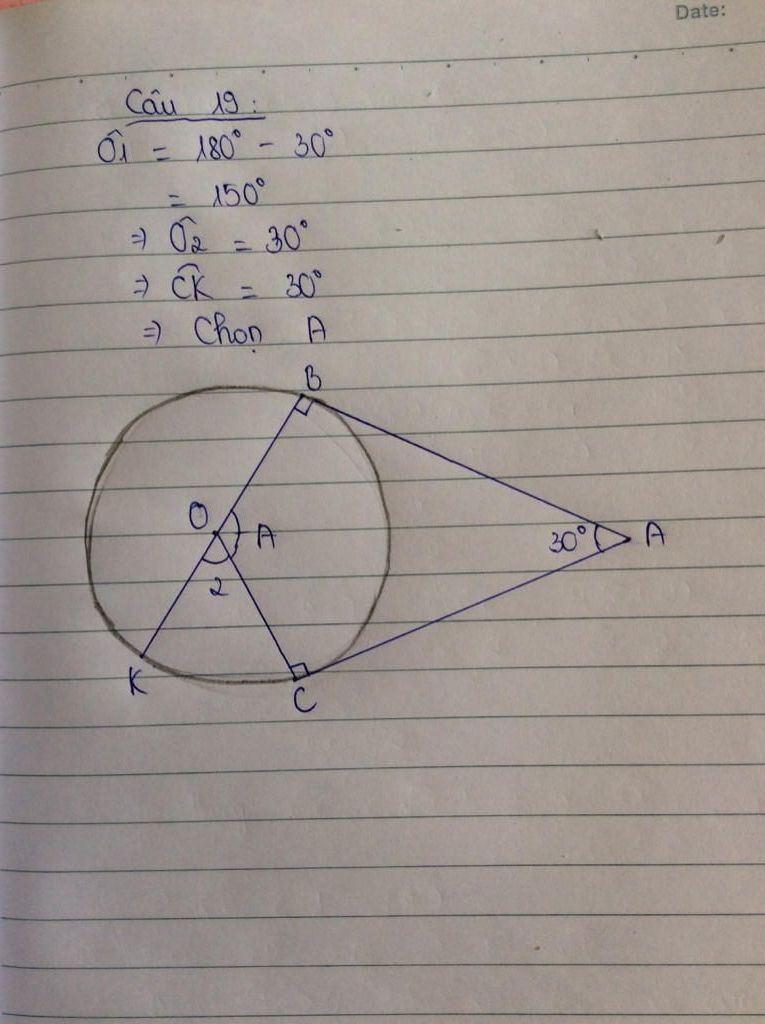 Date:
Câu 19:
Ô1 = 180° - 30°
= 150°
⇒ Ô2 = 30°
⇒ C͡K = 30°
⇒ Chọn A
B
O
A
30°
A
2
K
C